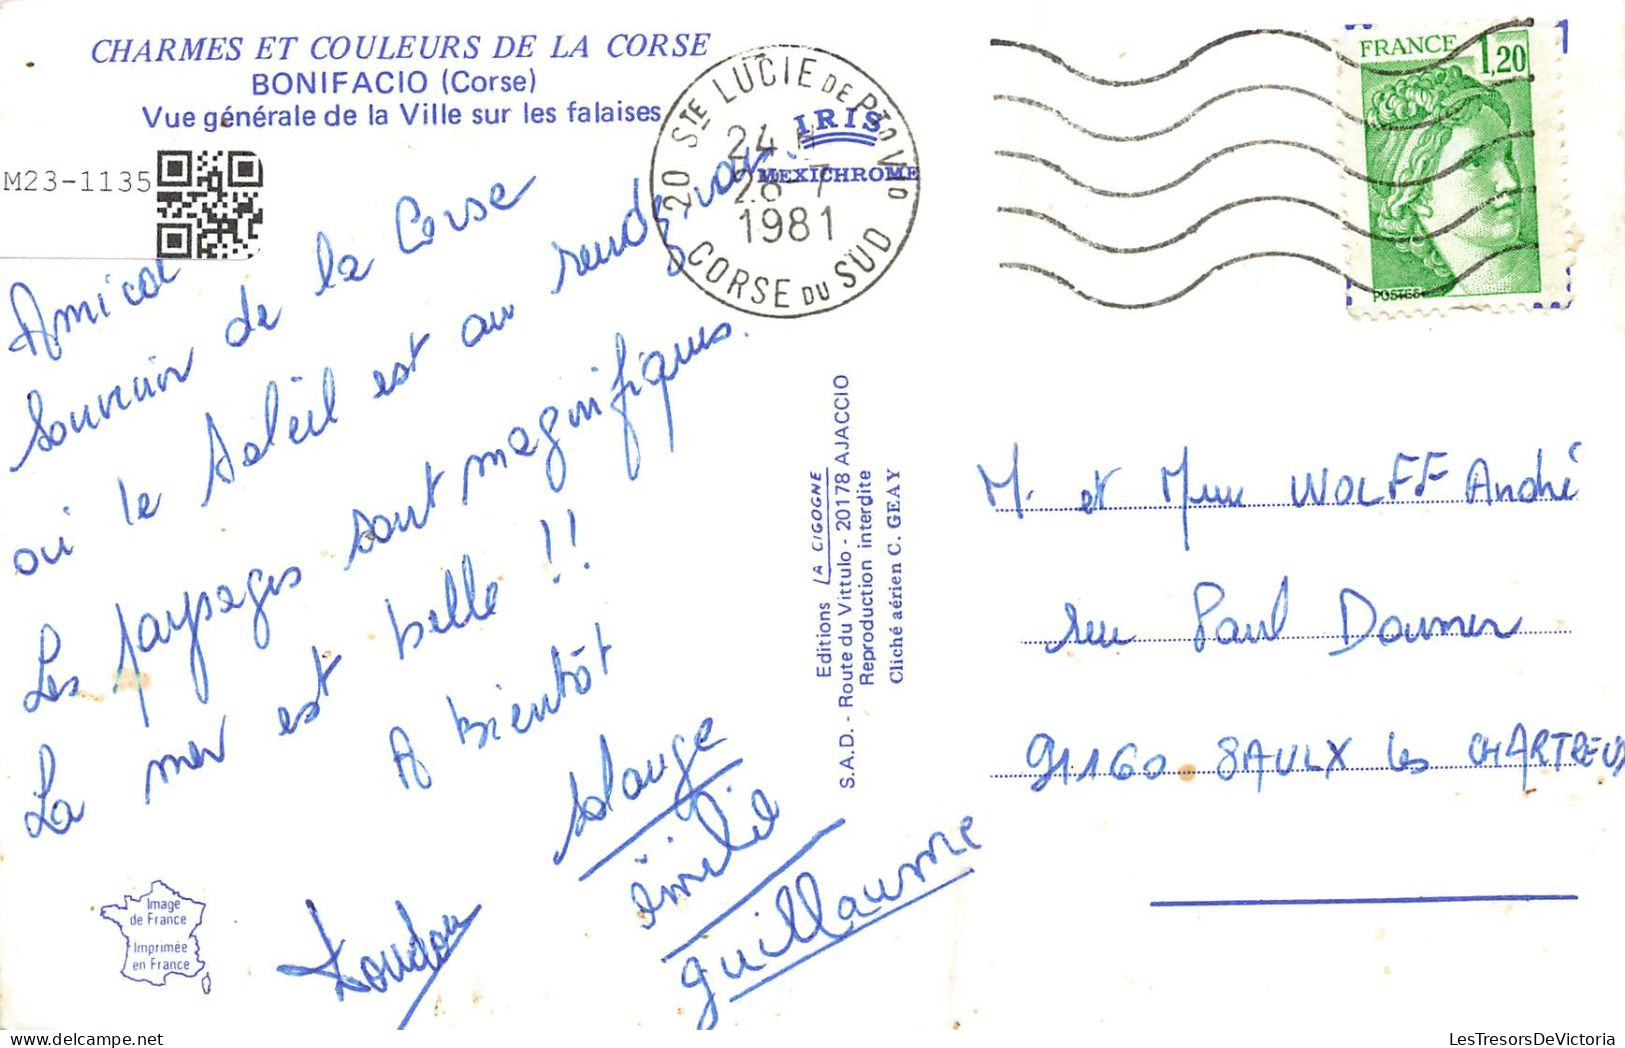 CHARMES ET COULEURS DE LA CORSE
BONIFACIO (Corse)
Vue générale de la Ville sur les falaises
M23-1135
Amical
Souvenir de la Corse
où le Soleil est au rendez-vous.
Les paysages sont magnifiques.
La mer est belle !!
A Bientôt
Solange
émilie
guillaume
Doudou
20 STE LUCIE DE PTO VIO
24 H
28-7
1981
CORSE DU SUD
IRIS
MEXICHROME
FRANCE 1,20
POSTES
1
Editions LA CIGOGNE
S.A.D. - Route du Vittulo - 20178 AJACCIO
Reproduction interdite
Cliché aérien C. GEAY
M. et Mme WOLFF André
rue Paul Doumer
91160 SAULX les CHARTREUX
Image
de France
Imprimée
en France
LesTresorsDeVictoria